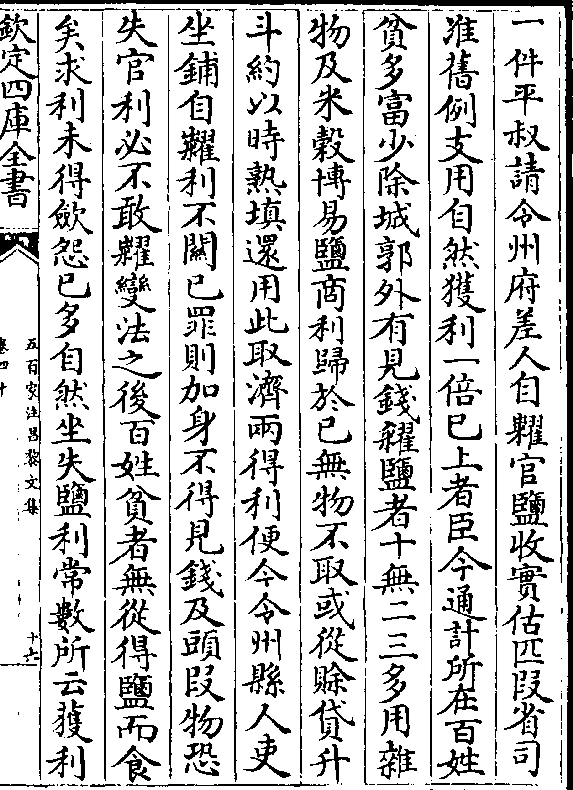 一件平叔請令州府差人自糶官鹽收實估匹段省司
准舊例支用自然獲利一倍已上者臣今通計所在百姓
貧多富少除城郭外有見錢糴鹽者十無二三多用雜
物及米穀博易鹽商利歸於已無物不取或從賒貸升
斗約以時熟填還用此取濟兩得利便今令州縣人吏
坐鋪自糶利不關已罪則加身不得見錢及頭段物恐
失官利必不敢糶變法之後百姓貧者無從得鹽而食
矣求利未得斂怨已多自然坐失鹽利常數所云獲利
欽定四庫全書
五百家注昌黎文集
卷四十
十六